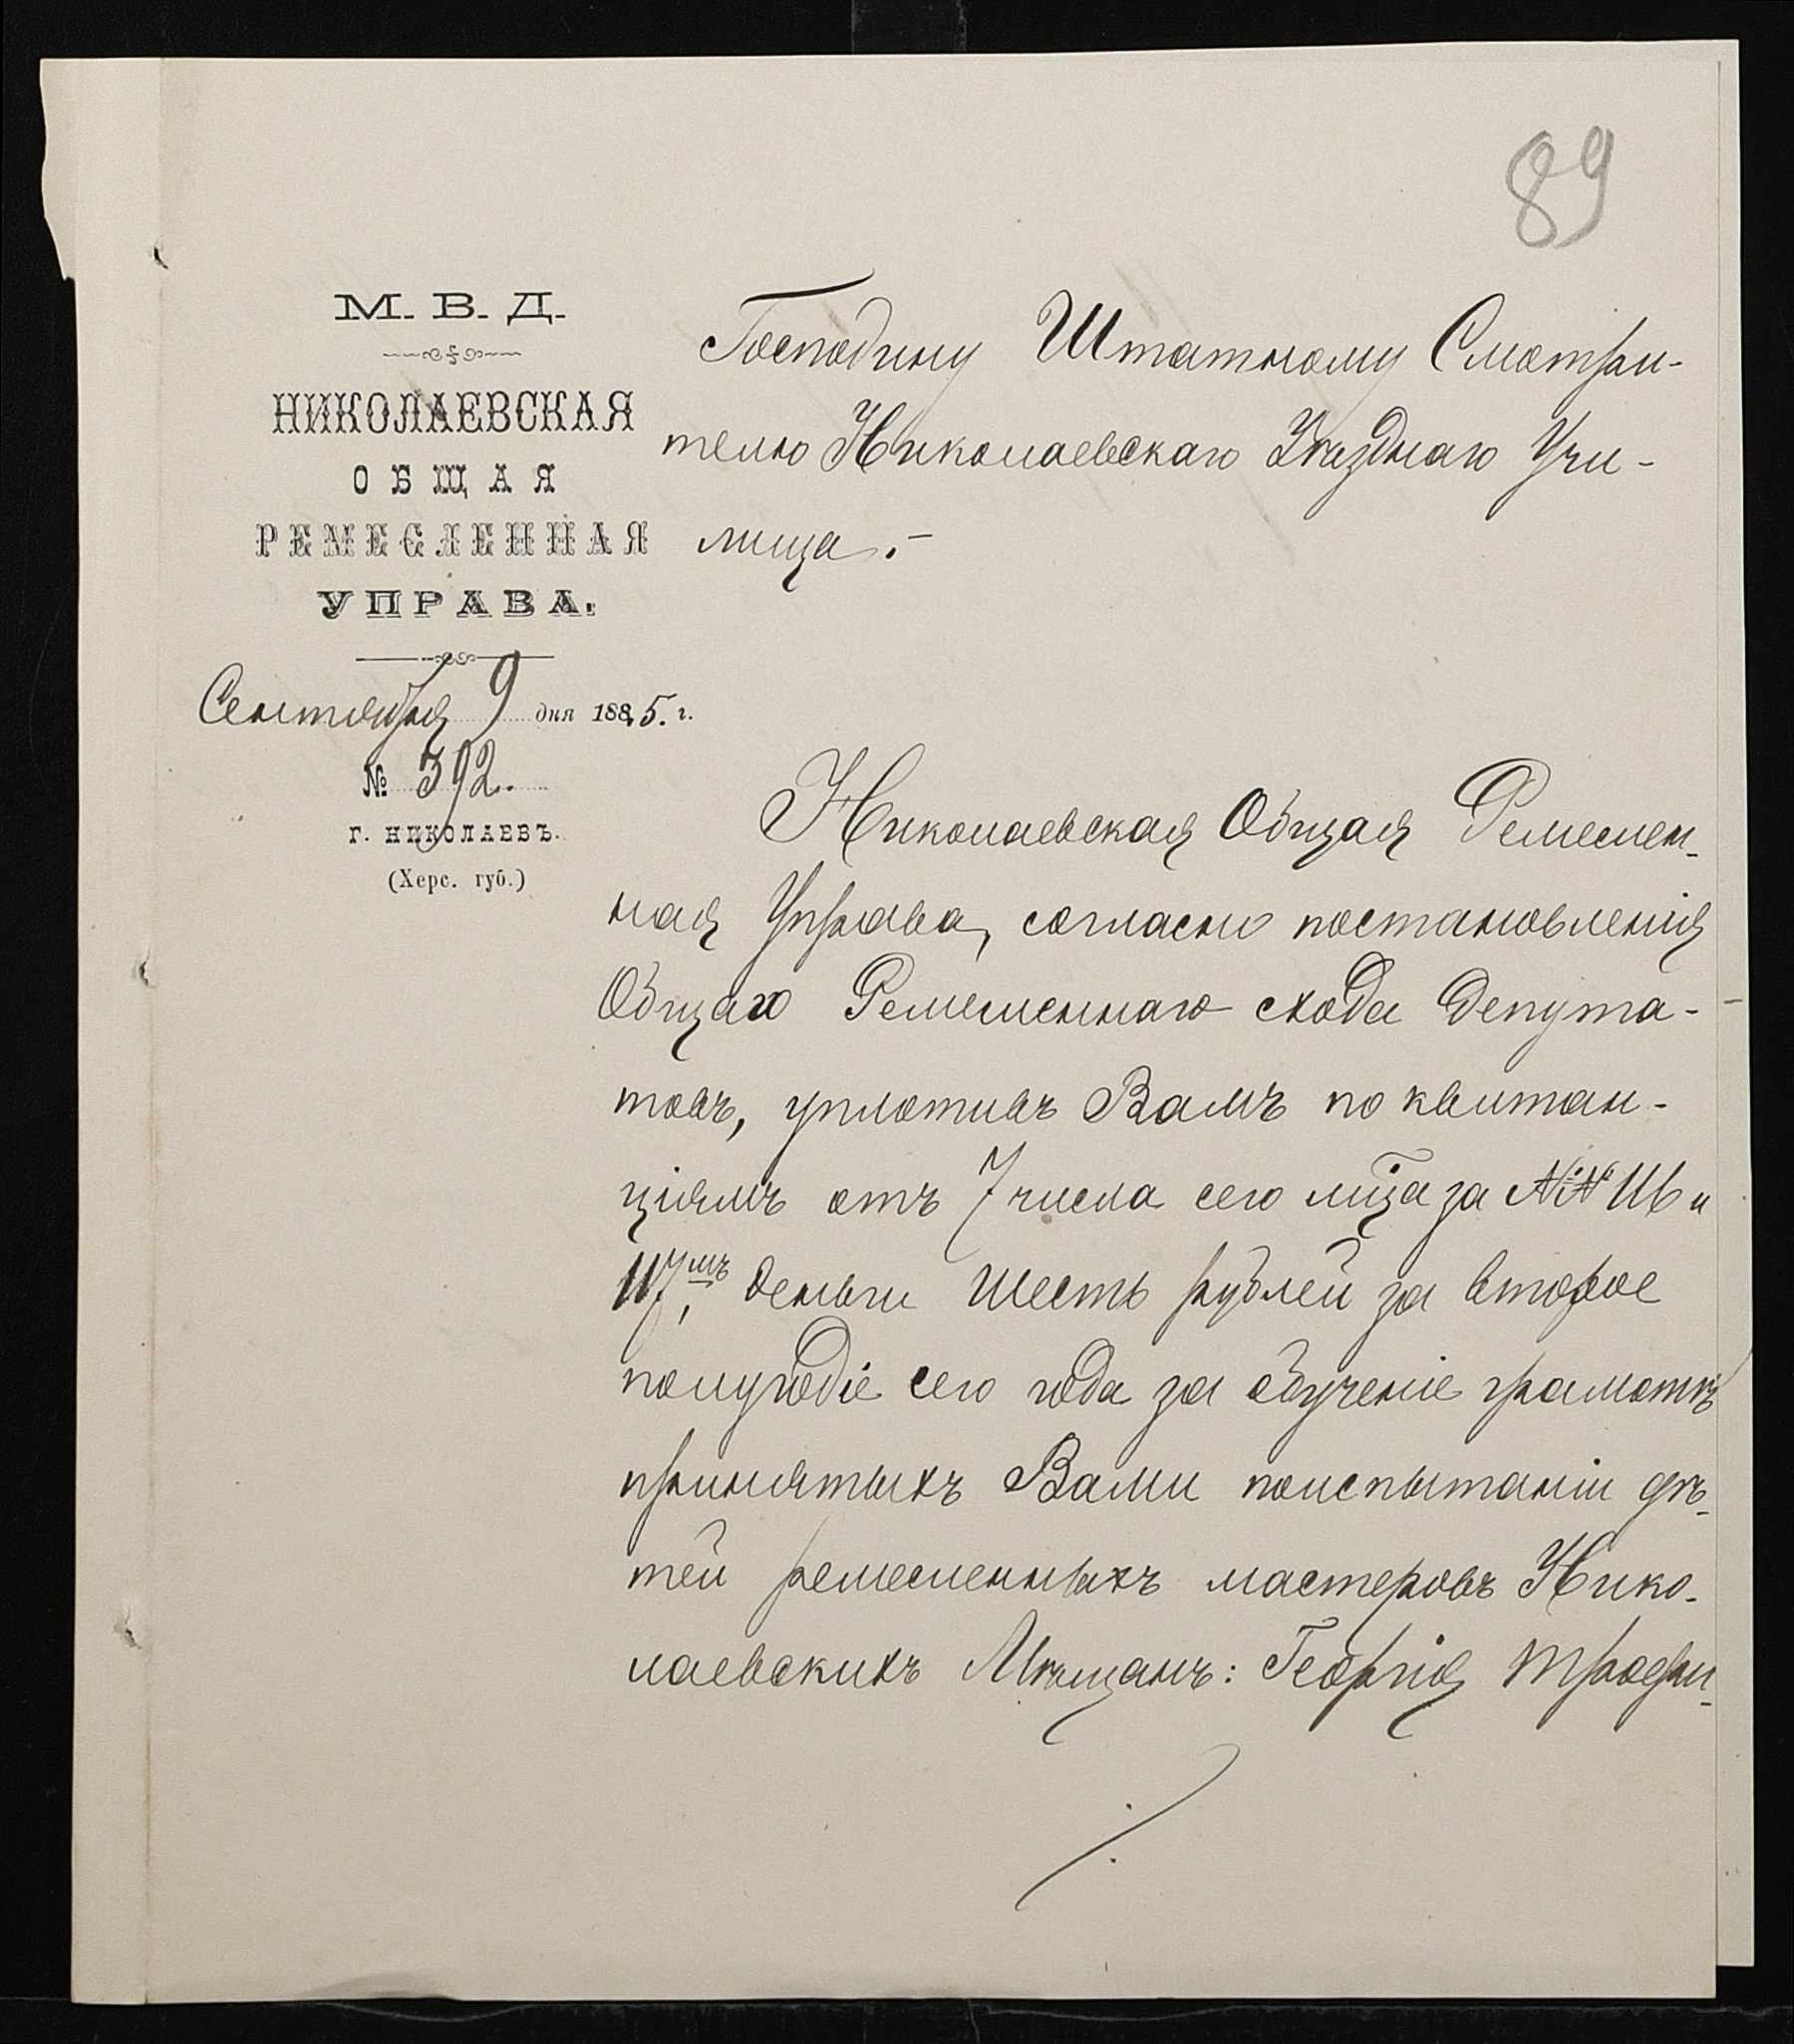 89
М. В. Д.
НИКОЛАЕВСКАЯ
ОБЩАЯ
РЕМЕСЛЕННАЯ
УПРАВА.
Сентября 9 дня 1885. г.
№ 392.
Г. НИКОЛАЕВЪ.
(Херс. губ.)
Господину Штатному Смотри-
телю Николаевскаго Уѣзднаго Учи-
лища.-
Николаевская Общая Ремеслен-
ная Управа, согласно постановленія
Общаго Ремесленнаго схода депута-
товъ, уплотивъ Вамъ по квитан-
ціямъ отъ 7 числа сего м͠ца за №№ 116 и
117мъ, деньги шесть рублей за второе
полугодіе сего года за обученіе грамотѣ
принятыхъ Вами поиспытаніи дѣ-
тей ремесленныхъ мастеровъ Нико-
лаевскихъ Мѣщанъ: Георгія